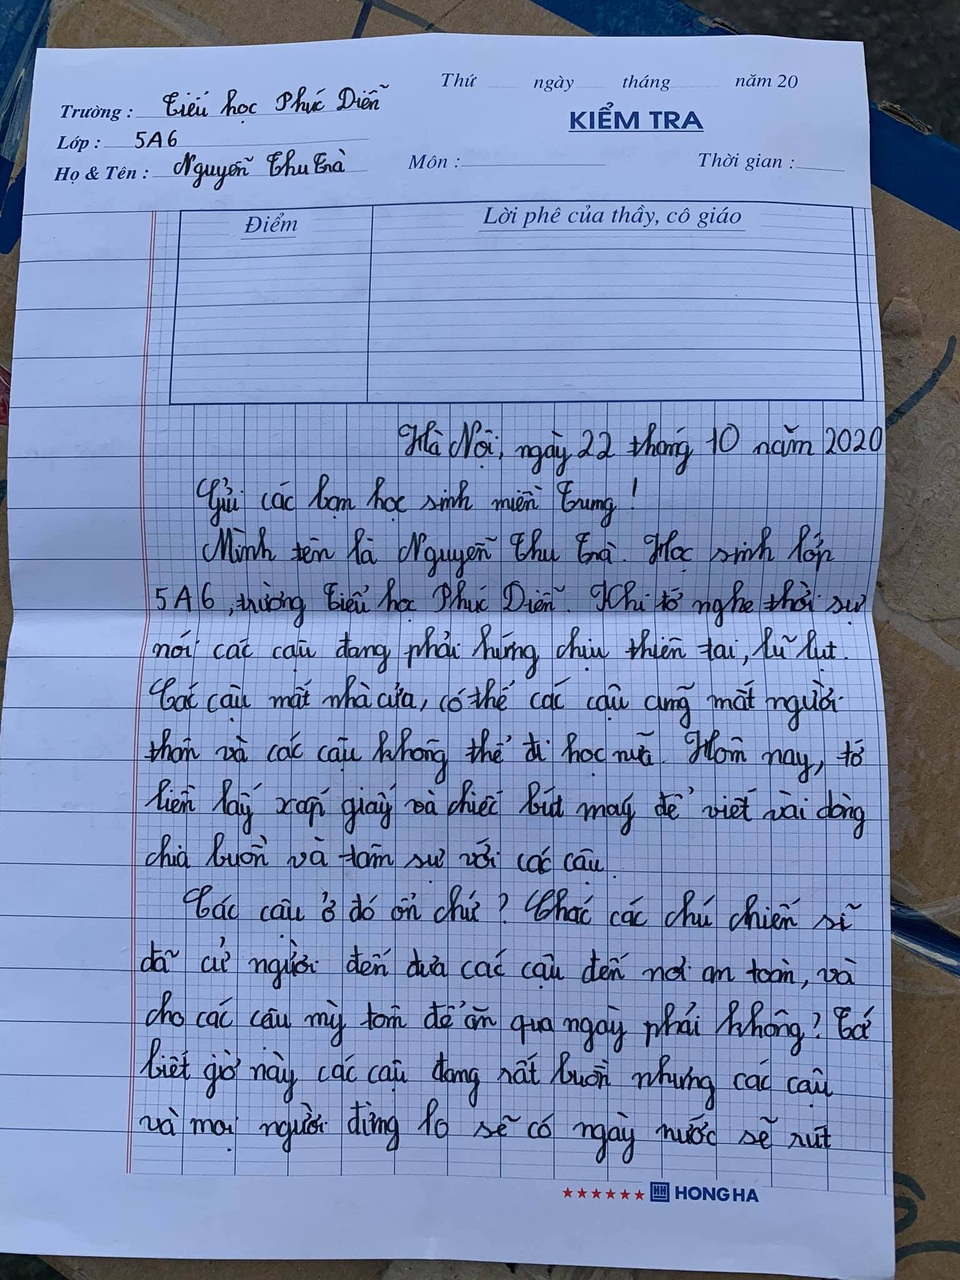 Thứ ngày tháng năm 20
Trường : Tiểu học Phúc Diễn
KIỂM TRA
Lớp : 5A6
Họ & Tên : Nguyễn Thu Trà
Môn : Thời gian :
Điểm
Lời phê của thầy, cô giáo
Hà Nội, ngày 22 tháng 10 năm 2020
Gửi các bạn học sinh miền Trung !
Mình tên là Nguyễn Thu Trà. Học sinh lớp
5A6, trường Tiểu học Phúc Diễn. Khi tớ nghe thời sự
nói các cậu đang phải hứng chịu thiên tai, lũ lụt.
Các cậu mất nhà cửa, có thể các cậu cũng mất người
thân và các cậu không thể đi học nữa. Hôm nay, tớ
liền lấy xấp giấy và chiếc bút máy để viết vài dòng
chia buồn và tâm sự với các cậu.
Các cậu ở đó ổn chứ ? Chắc các chú chiến sĩ
đã cử người đến đưa các cậu đến nơi an toàn, và
cho các cậu mỳ tôm để ăn qua ngày phải không ? Tớ
biết giờ này các cậu đang rất buồn nhưng các cậu
và mọi người đừng lo sẽ có ngày nước sẽ rút
HONG HA